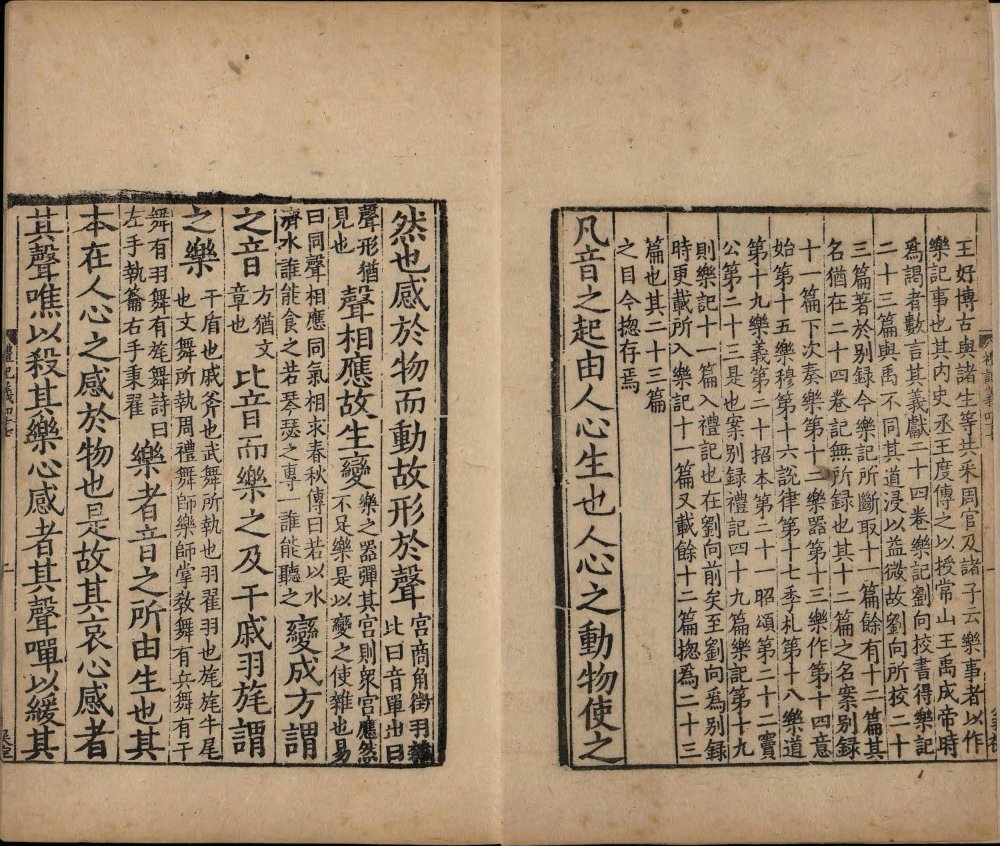 王好博古與諸生等共采周官及諸子云樂事者以作
樂記事也其内史丞王度傳之以授常山王禹成帝時
爲謁者數言其義獻二十四卷樂記劉向校書得樂記
二十三篇與禹不同其道浸以益微故劉向所校二十
三篇著於别録今樂記所斷取十一篇餘有十二篇其
名猶在二十四卷記無所録也其十二篇之名案别録
十一篇下次奏樂第十二樂器第十三樂作第十四意
始第十五樂穆第十六說律第十七季札第十八樂道
第十九樂義第二十招本第二十一昭頌第二十二竇
公第二十三是也案别録禮記四十九篇樂記第十九
則樂記十一篇入禮記也在劉向前矣至劉向爲别録
時更載所入樂記十一篇又載餘十二篇揔爲二十三
篇也其二十三篇
之目今揔存焉
凡音之起由人心生也人心之動物使之
然也感於物而動故形於聲
宫商角徵羽雜
比曰音單出曰
聲形猶
見也
聲相應故生變
樂之器彈其宫則衆宫應然
不足樂是以變之使雜也易
曰同聲相應同氣相求春秋傳曰若以水
濟水誰能食之若琴瑟之專一誰能聽之
變成方謂
之音
方猶文
章也
比音而樂之及干戚羽旄謂
之樂
干盾也戚斧也武舞所執也羽翟羽也旄旄牛尾
也文舞所執周禮舞師樂師掌敎舞有兵舞有干
舞有羽舞有旄舞詩曰
左手執籥右手秉翟
樂者音之所由生也其
本在人心之感於物也是故其哀心感者
其聲噍以殺其樂心感者其聲嘽以緩其